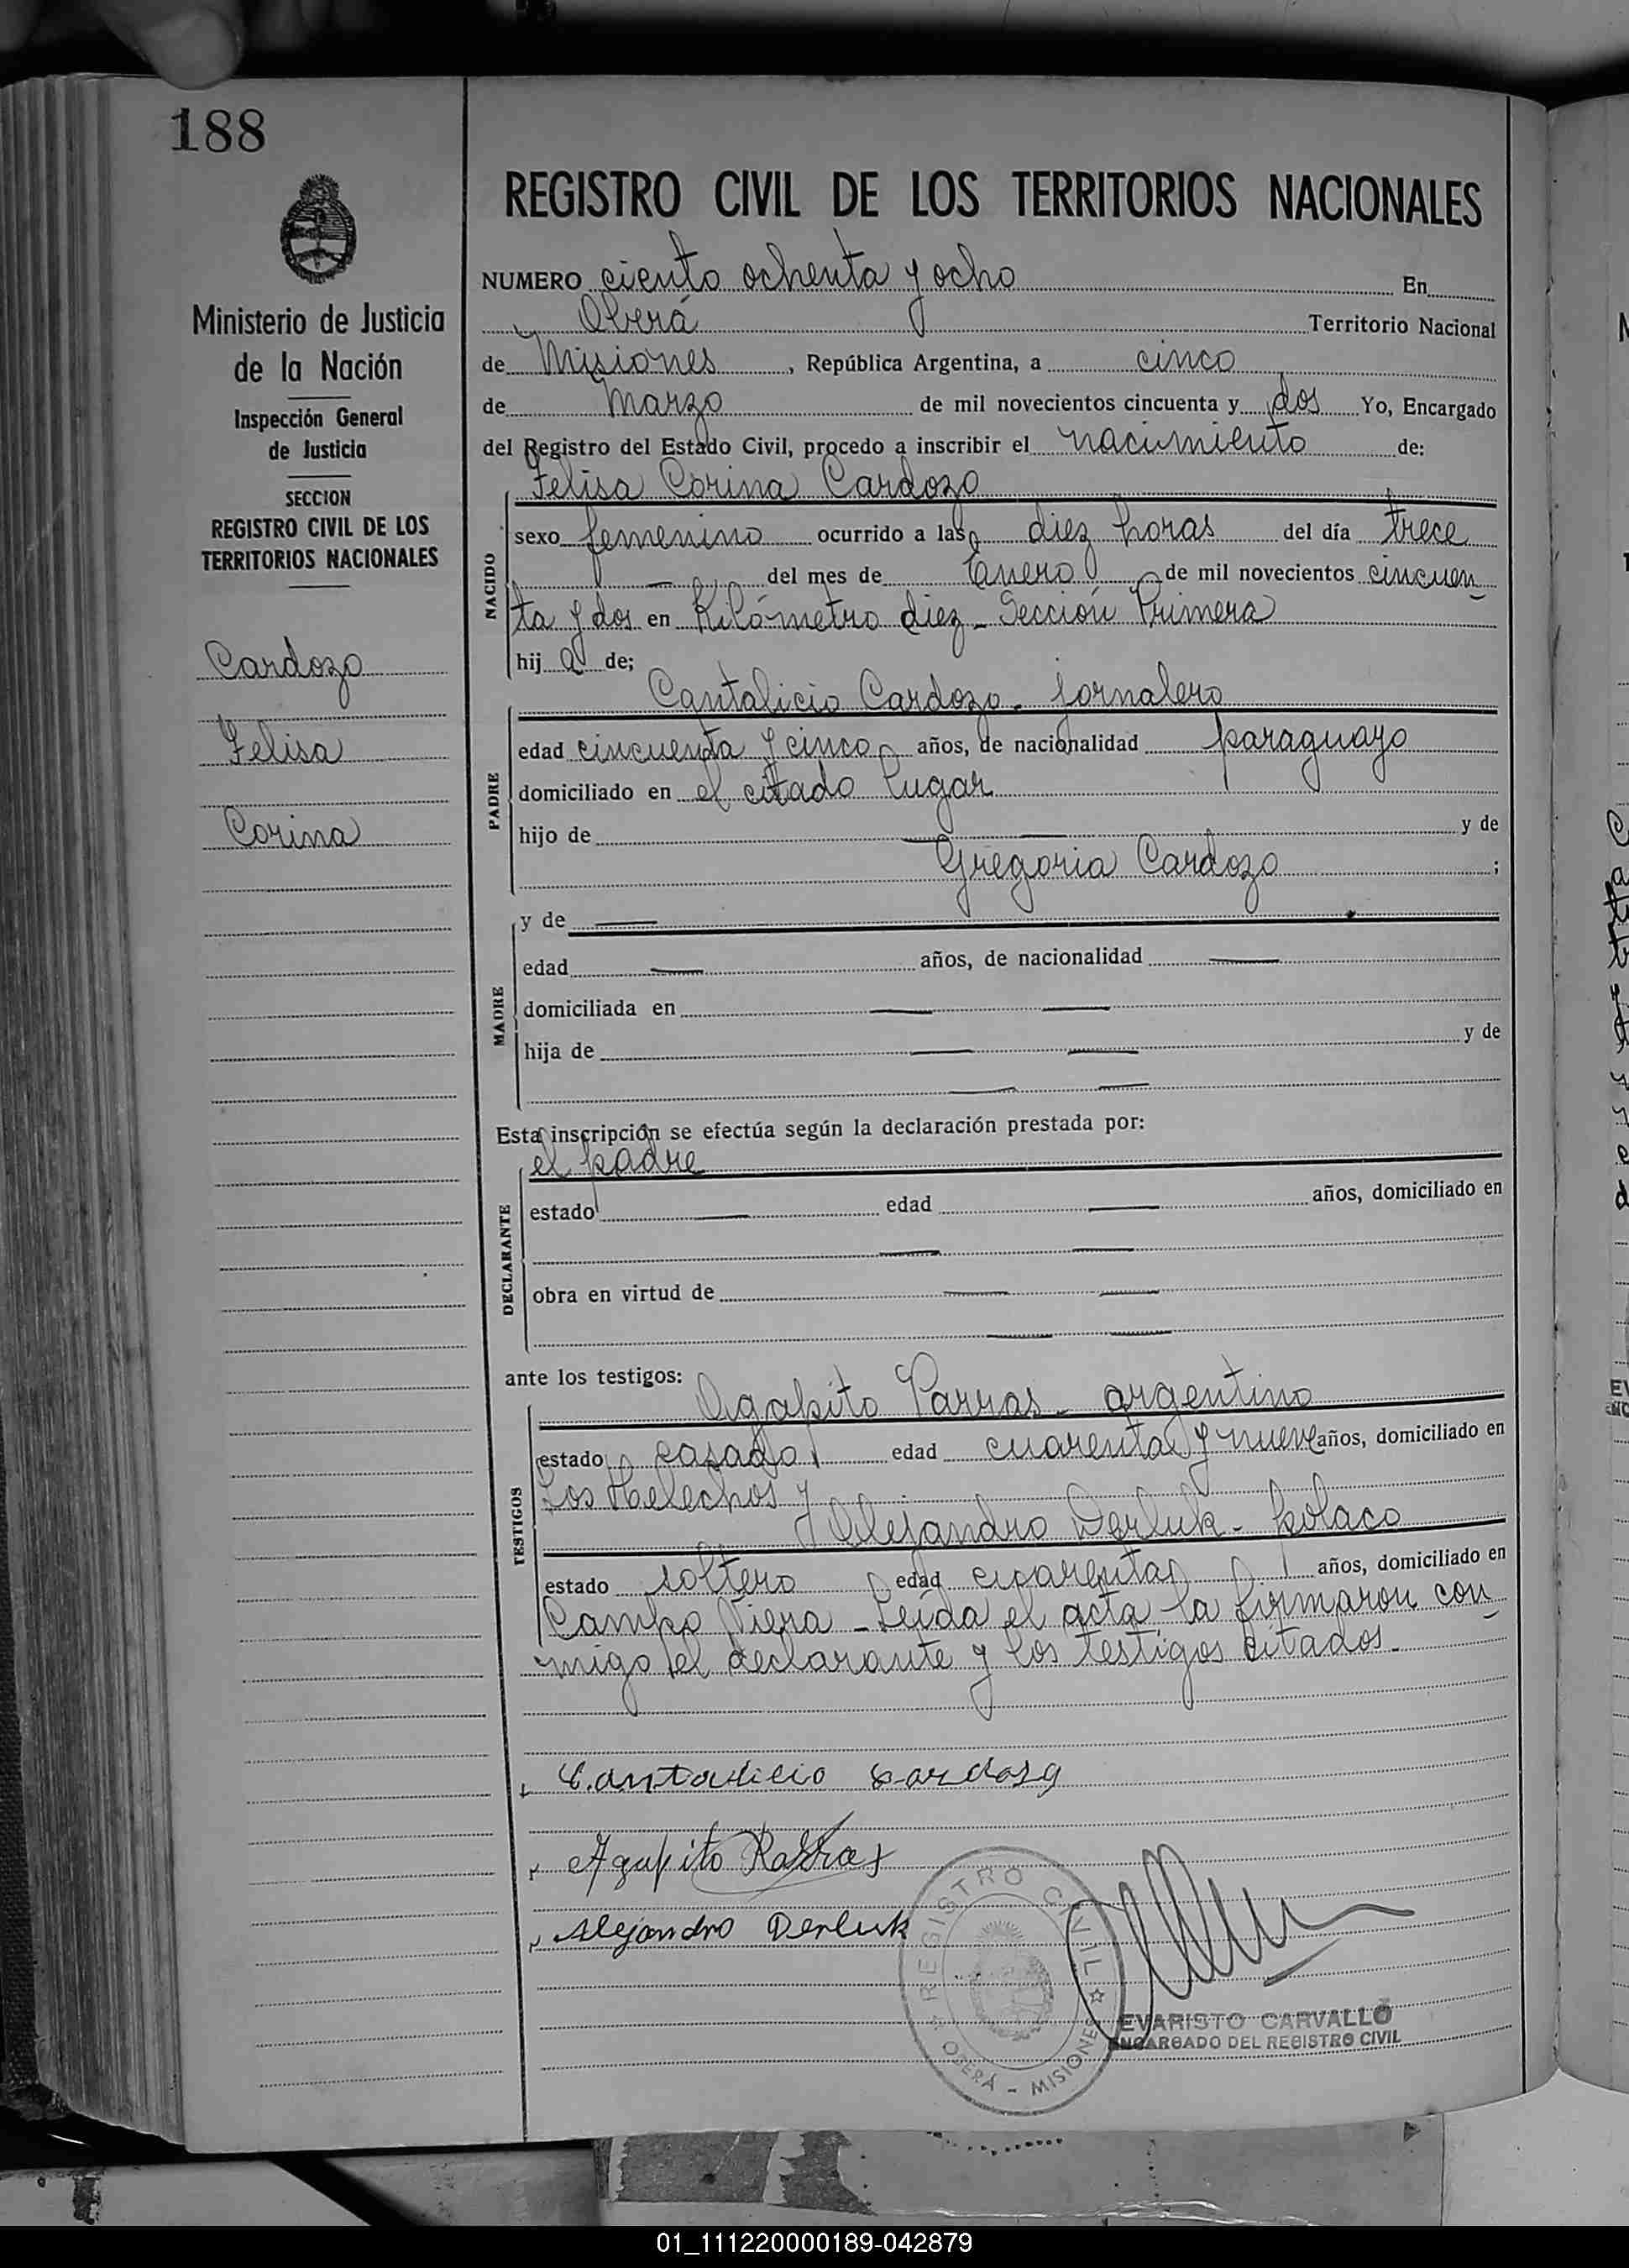 188
Ministerio de Justicia
de la Nación
Inspección General
de Justicia
SECCION
REGISTRO CIVIL DE LOS
TERRITORIOS NACIONALES
Cardozo
Felisa
Corina
REGISTRO CIVIL DE LOS TERRITORIOS NACIONALES
NUMERO ciento ochenta y ocho En
Oberá Territorio Nacional
de Misiones, República Argentina, a cinco
de Marzo de mil novecientos cincuenta y dos Yo, Encargado
del Registro del Estado Civil, procedo a inscribir el nacimiento de:
Felisa Corina Cardozo
NACIDO
sexo femenino ocurrido a las diez horas del día trece
— del mes de Enero de mil novecientos cincuen
ta y dos en Kilómetro diez - Sección Primera
hija de;
Cantalicio Cardozo - jornalero
PADRE
edad cincuenta y cinco años, de nacionalidad paraguayo
domiciliado en el citado lugar
hijo de — — y de
Gregoria Cardozo ;
y de —
MADRE
edad — años, de nacionalidad —
domiciliada en — —
hija de — — y de
— —
Esta inscripción se efectúa según la declaración prestada por:
el padre
DECLARANTE
estado — edad — años, domiciliado en
— —
obra en virtud de — —
— —
ante los testigos:
Agapito Parras - argentino
TESTIGOS
estado casado edad cuarenta y nueve años, domiciliado en
Los Helechos y
Alejandro Derluk - polaco
estado soltero edad cuarenta años, domiciliado en
Campo Viera - Leída el acta la firmaron con
migo el declarante y los testigos citados.
Cantalicio Cardozo
Agapito Parras
Alejandro Derluk
REGISTRO CIVIL
OBERÁ - MISIONES
EVARISTO CARVALLO
ENCARGADO DEL REGISTRO CIVIL
01_111220000189-042879